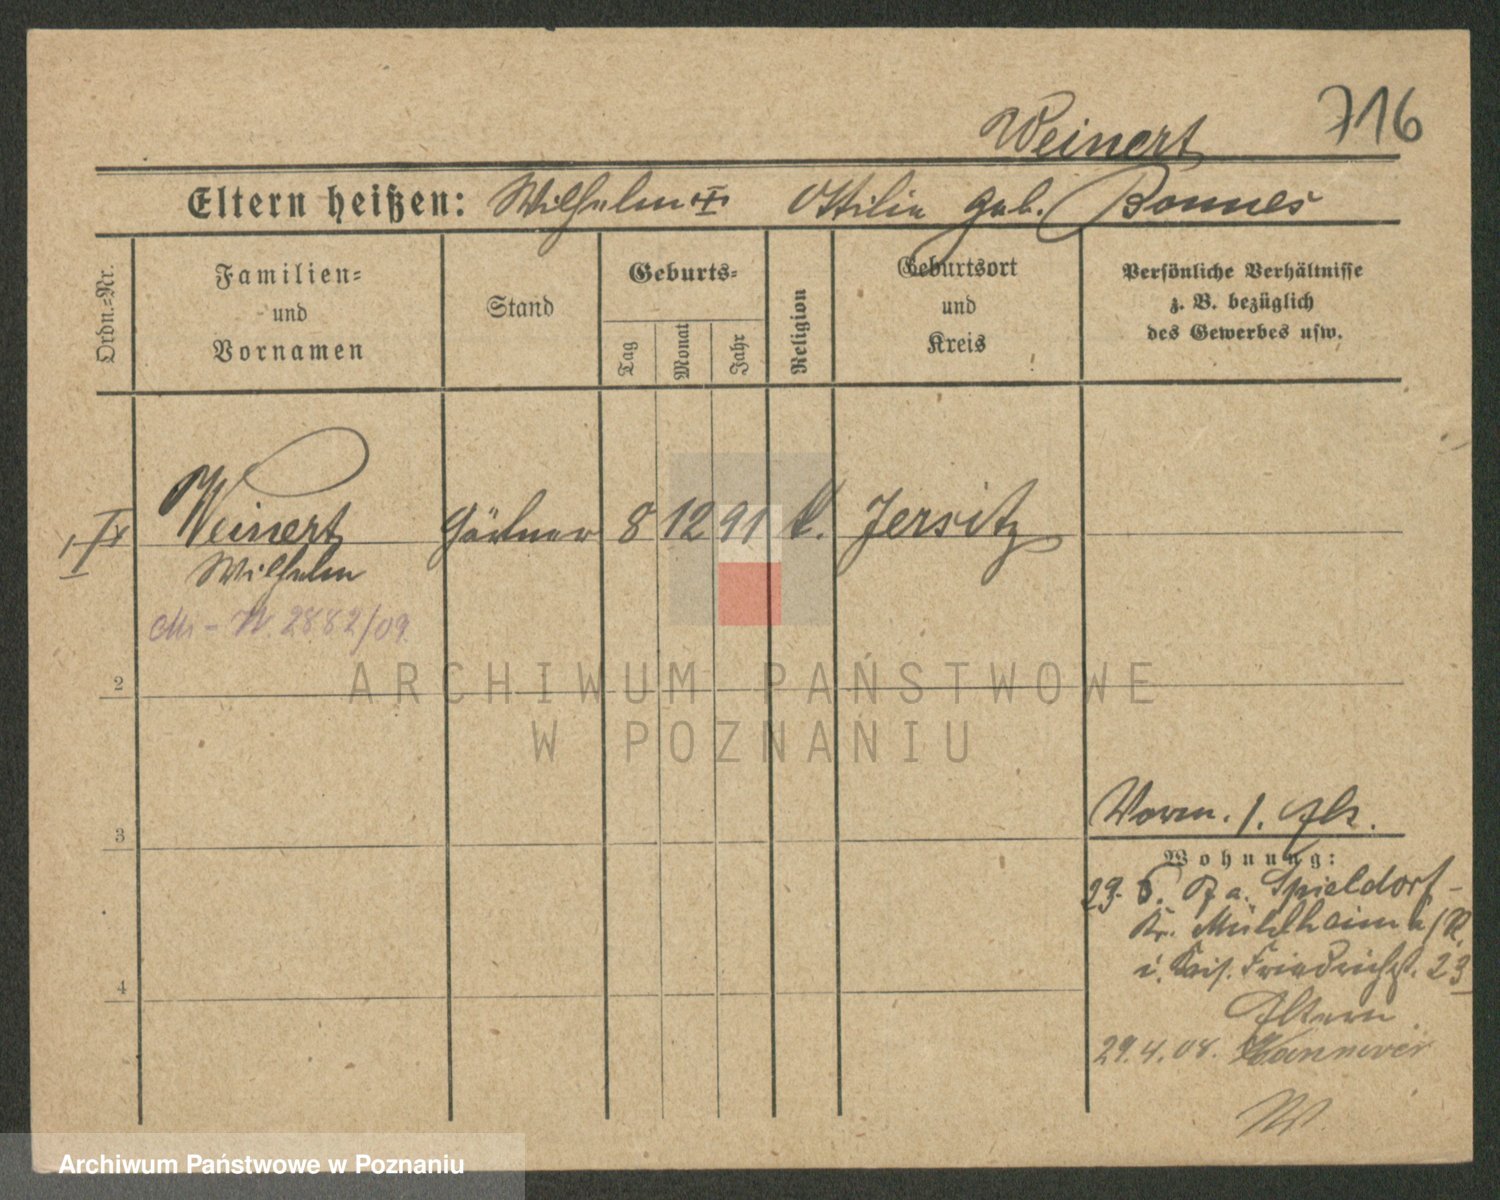 716
Weinert
Eltern heißen: Wilhelm Ottilie geb. Bonnes
Ordn.-Nr.
Familien-
und
Vornamen
Stand
Geburts-
Tag
Monat
Jahr
Religion
Geburtsort
und
Kreis
Persönliche Verhältnisse
z. B. bezüglich
des Gewerbes usw.
Weinert Gärtner 8 12 91 k. Jersitz
Wilhelm
W. 2882/09
2
3
4
Vorm. 1.
Wohnung:
29. Spieldorf-
Kr. Mühlheim a/R
i. Friedrichst. 23
Eltern
29.4.08. Hannover
W.
ARCHIWUM PAŃSTWOWE
W POZNANIU
Archiwum Państwowe w Poznaniu